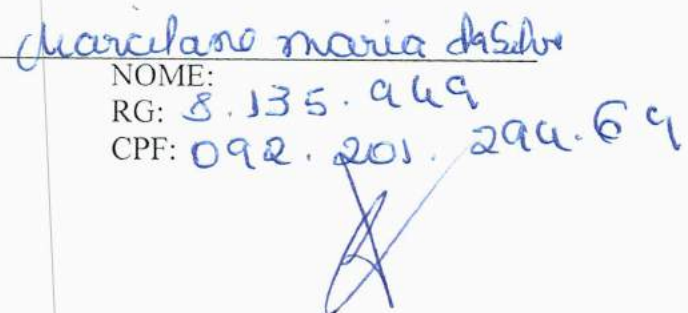 Marcilane maria da Silva
NOME:
RG: 8.135.949
CPF: 092.201.294.69